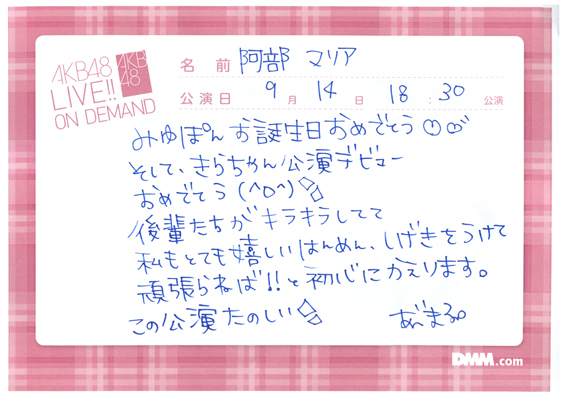 AKB48
LIVE!!
ON DEMAND
AKB
48
名 前 阿部 マリア
公演日 9 月 14 日 18 : 30 公演
みゆぽん お誕生日おめでとう
そして、きらちゃん公演デビュー
おめでとう(^o^)
後輩たちがキラキラしてて
私もとても嬉しいはんめん、しげきをうけて
頑張らねば!!と初心にかえります。
この公演たのしい
あべまる
DMM.com